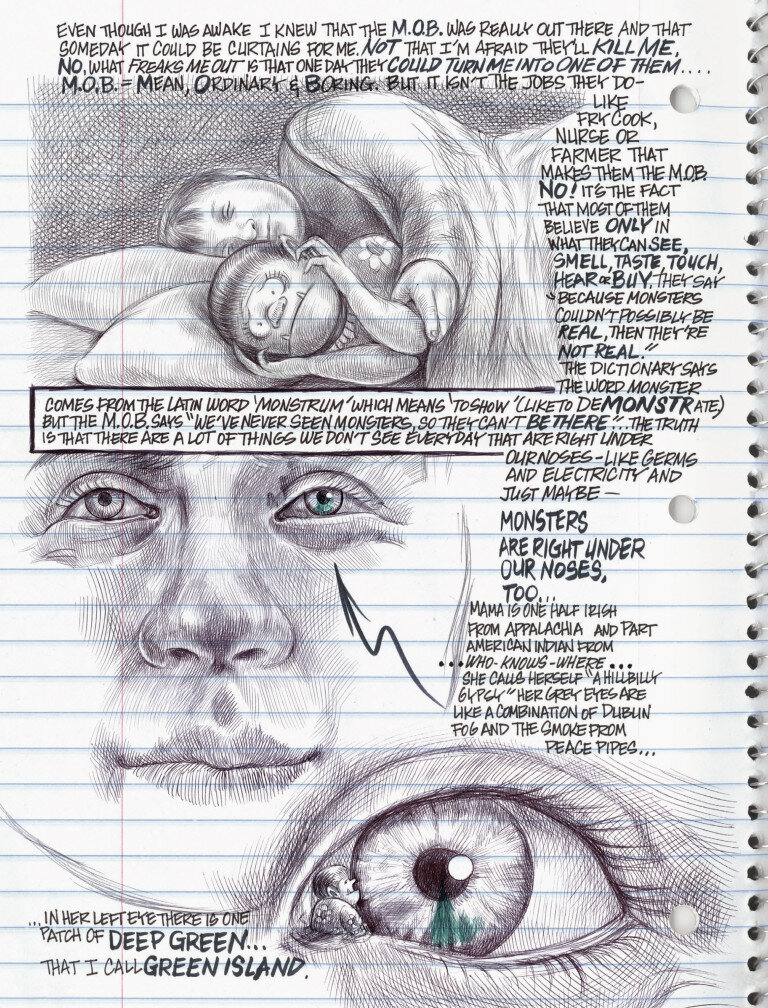 EVEN THOUGH I WAS AWAKE I KNEW THAT THE M.O.B. WAS REALLY OUT THERE AND THAT
SOMEDAY IT COULD BE CURTAINS FOR ME. NOT THAT I'M AFRAID THEY'LL KILL ME,
NO, WHAT FREAKS ME OUT IS THAT ONE DAY THEY COULD TURN ME INTO ONE OF THEM....
M.O.B. = MEAN, ORDINARY & BORING. BUT IT ISN'T THE JOBS THEY DO-
LIKE
FRY COOK,
NURSE OR
FARMER THAT
MAKES THEM THE M.O.B.
NO! IT'S THE FACT
THAT MOST OF THEM
BELIEVE ONLY IN
WHAT THEY CAN SEE,
SMELL, TASTE, TOUCH,
HEAR OR BUY. THEY SAY
"BECAUSE MONSTERS
COULDN'T POSSIBLY BE
REAL, THEN THEY'RE
NOT REAL."
THE DICTIONARY SAYS
THE WORD MONSTER
COMES FROM THE LATIN WORD 'MONSTRUM' WHICH MEANS 'TO SHOW' (LIKE TO DEMONSTRATE)
BUT THE M.O.B. SAYS "WE'VE NEVER SEEN MONSTERS, SO THEY CAN'T BE THERE". THE TRUTH
IS THAT THERE ARE A LOT OF THINGS WE DON'T SEE EVERYDAY THAT ARE RIGHT UNDER
OUR NOSES - LIKE GERMS
AND ELECTRICITY AND
JUST MAYBE —
MONSTERS
ARE RIGHT UNDER
OUR NOSES,
TOO...
MAMA IS ONE HALF IRISH
FROM APPALACHIA AND PART
AMERICAN INDIAN FROM
...WHO-KNOWS-WHERE...
SHE CALLS HERSELF "A HILLBILLY
GYPSY" HER GREY EYES ARE
LIKE A COMBINATION OF DUBLIN
FOG AND THE SMOKE FROM
PEACE PIPES...
...IN HER LEFT EYE THERE IS ONE
PATCH OF DEEP GREEN...
THAT I CALL GREEN ISLAND.